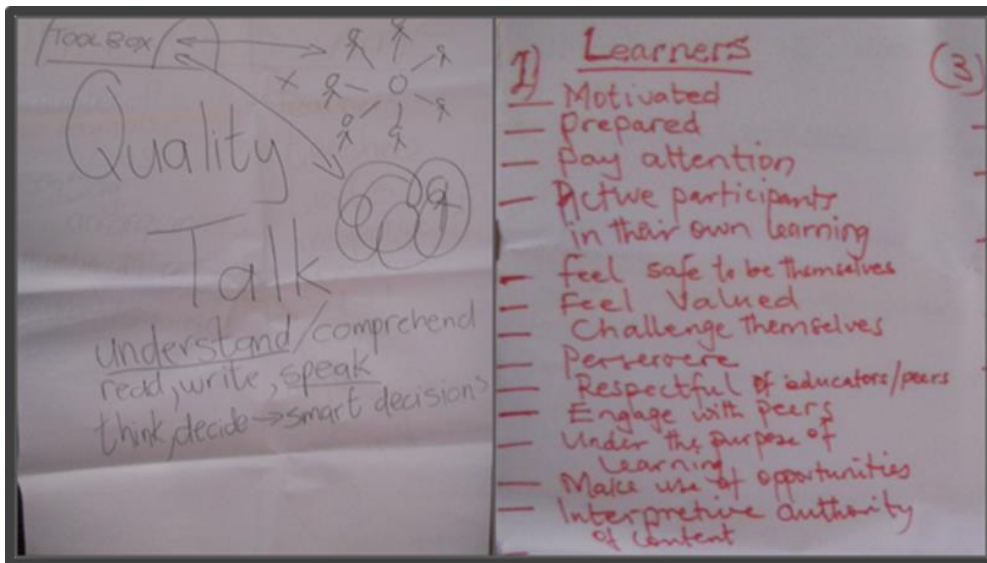 TOOLBOX
Quality
Talk
understand/comprehend
read, write, speak
think, decide → smart decisions
1) Learners
(3)
— Motivated
— Prepared
— pay attention
— Active participants
in their own learning
— feel safe to be themselves
— Feel Valued
— Challenge themselves
— Perservere
— Respectful of educators/peers
— Engage with peers
— Under the purpose of
learning
— Make use of opportunities
— Interpretive authority
of content